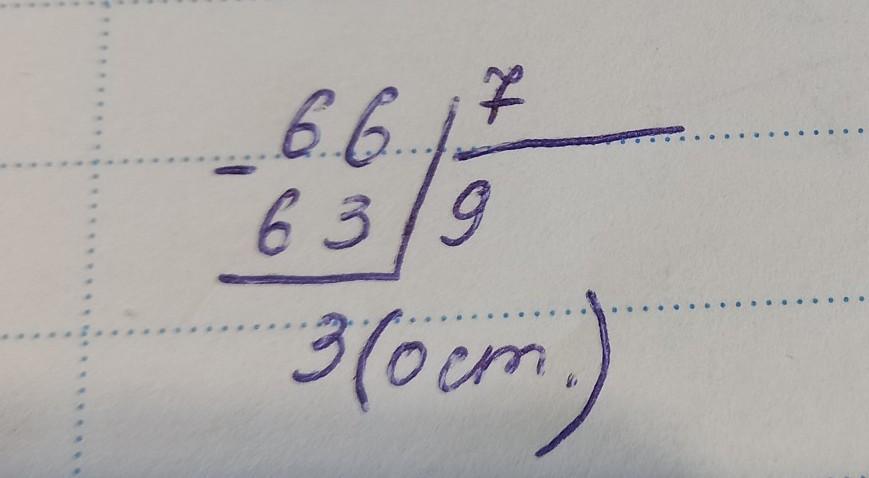 66 7
- 63 9
3 (ост.)